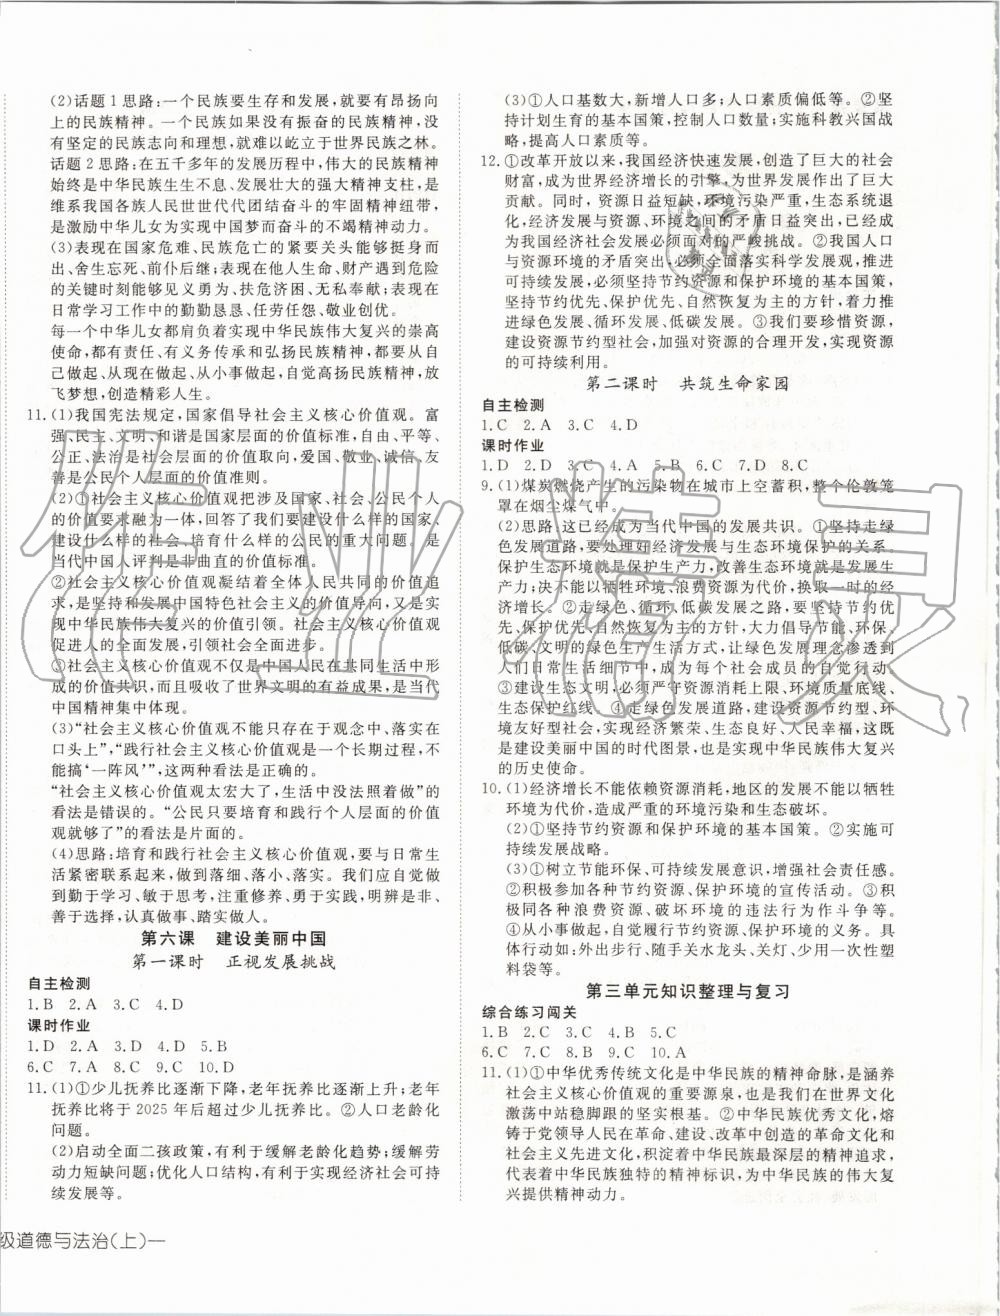 (2)话题1思路:一个民族要生存和发展,就要有昂扬向
上的民族精神。一个民族如果没有振奋的民族精神,没
有坚定的民族志向和理想,就难以屹立于世界民族之林。
话题2思路:在五千多年的发展历程中,伟大的民族精神
始终是中华民族生生不息、发展壮大的强大精神支柱,是
维系我国各族人民世世代代团结奋斗的牢固精神纽带,
是激励中华儿女为实现中国梦而奋斗的不竭精神动力。
(3)表现在国家危难、民族危亡的紧要关头能够挺身而
出、舍生忘死、前仆后继;表现在他人生命、财产遇到危险
的关键时刻能够见义勇为、扶危济困、无私奉献;表现在
日常学习工作中的勤勤恳恳、任劳任怨、敬业创优。
每一个中华儿女都肩负着实现中华民族伟大复兴的崇高
使命,都有责任、有义务传承和弘扬民族精神,都要从自
己做起、从现在做起、从小事做起,自强不息、坚持不懈,放
飞梦想,创造精彩人生。
11.(1)我国宪法规定,国家倡导社会主义核心价值观。富
强、民主、文明、和谐是国家层面的价值标准,自由、平等、
公正、法治是社会层面的价值取向,爱国、敬业、诚信、友
善是公民个人层面的价值准则。
(2)①社会主义核心价值观把涉及国家、社会、公民个人
的价值要求融为一体,回答了我们要建设什么样的国家、
建设什么样的社会、培育什么样的公民的重大问题。是
当代中国人评判是非曲直的价值标准。
②社会主义核心价值观凝结着全体人民共同的价值追
求,是坚持和发展中国特色社会主义的价值导向,又是实
现中华民族伟大复兴的价值引领。社会主义核心价值观
促进人的全面发展,引领社会全面进步。
③社会主义核心价值观不仅是中国人民在共同生活中形
成的价值共识,而且吸收了世界文明的有益成果,是当代
中国精神集中体现。
(3)“社会主义核心价值观不能只存在于观念中、落实在
口头上”,“践行社会主义核心价值观是一个长期过程,不
能搞‘一阵风’”,这两种看法是正确的。
“社会主义核心价值观太宏大了,生活中没法照着做”的
看法是错误的。“公民只要培育和践行个人层面的价值
观就够了”的看法是片面的。
(4)思路:培育和践行社会主义核心价值观,要与日常生
活紧密联系起来,做到落细、落小、落实。我们应自觉做
到勤于学习、敏于思考,注重修养、勇于实践,明辨是非、
善于选择,认真做事、踏实做人。
第六课 建设美丽中国
第一课时 正视发展挑战
自主检测
1.B 2.A 3.C 4.D
课时作业
1.D 2.A 3.D 4.D 5.B
6.C 7.A 8.C 9.C 10.D
11.(1)①少儿抚养比逐渐下降,老年抚养比逐渐上升;老年
抚养比将于2025年后超过少儿抚养比。②人口老龄化
问题。
(2)启动全面二孩政策,有利于缓解老龄化趋势;缓解劳
动力短缺问题;优化人口结构,有利于实现经济社会可持
续发展等。
级道德与法治(上)一
(3)①人口基数大,新增人口多;人口素质偏低等。②坚
持计划生育的基本国策,控制人口数量;实施科教兴国战
略,提高人口素质等。
12.①改革开放以来,我国经济快速发展,创造了巨大的社会
财富,成为世界经济增长的引擎,为世界发展作出了巨大
贡献。同时,资源日益短缺,环境污染严重,生态系统退
化,经济发展与资源、环境之间的矛盾日益突出,已经成
为我国经济社会发展必须面对的严峻挑战。②我国人口
与资源环境的矛盾突出,必须全面落实科学发展观,推进
可持续发展,必须坚持节约资源和保护环境的基本国策,
坚持节约优先、保护优先、自然恢复为主的方针,着力推
进绿色发展、循环发展、低碳发展。③我们要珍惜资源,
建设资源节约型社会,加强对资源的合理开发,实现资源
的可持续利用。
第二课时 共筑生命家园
自主检测
1.C 2.A 3.C 4.D
课时作业
1.D 2.D 3.C 4.A 5.B 6.C 7.D 8.C
9.(1)煤炭燃烧产生的污染物在城市上空蓄积,整个伦敦笼
罩在烟尘煤气中。
(2)思路:这已经成为当代中国的发展共识。①坚持走绿
色发展道路,要处理好经济发展与生态环境保护的关系。
保护生态环境就是保护生产力,改善生态环境就是发展生
产力;决不能以牺牲环境、浪费资源为代价,换取一时的经
济增长。②走绿色、循环、低碳发展之路,要坚持节约优
先、保护优先、自然恢复为主的方针,大力倡导节能、环保、
低碳、文明的绿色生产生活方式,让绿色发展理念渗透到
人们日常生活细节中,成为每个社会成员的自觉行动。
③建设生态文明,必须严守资源消耗上限、环境质量底线、
生态保护红线。④走绿色发展道路,建设资源节约型、环
境友好型社会,实现经济繁荣、生态良好、人民幸福,这既
是建设美丽中国的时代图景,也是实现中华民族伟大复兴
的历史使命。
10.(1)经济增长不能依赖资源消耗,地区的发展不能以牺牲
环境为代价,造成严重的环境污染和生态破坏。
(2)①坚持节约资源和保护环境的基本国策。②实施可
持续发展战略。
(3)①树立节能环保、可持续发展意识,增强社会责任感。
②积极参加各种节约资源、保护环境的宣传活动。③积
极同各种浪费资源、破坏环境的违法行为作斗争等。
④从小事做起,自觉履行节约资源、保护环境的义务。具
体行动如:外出步行、随手关水龙头、关灯、少用一次性塑
料袋等。
第三单元知识整理与复习
综合练习闯关
1.B 2.C 3.C 4.B 5.C
6.C 7.C 8.D 9.C 10.A
11.(1)①中华优秀传统文化是中华民族的精神命脉,是涵养
社会主义核心价值观的重要源泉,也是我们在世界文化
激荡中站稳脚跟的坚实根基。②中华民族优秀文化,熔
铸于党领导人民在革命、建设、改革中创造的革命文化和
社会主义先进文化,积淀着中华民族最深层的精神追求,
代表着中华民族独特的精神标识,为中华民族的伟大复
兴提供精神动力。
作业精灵